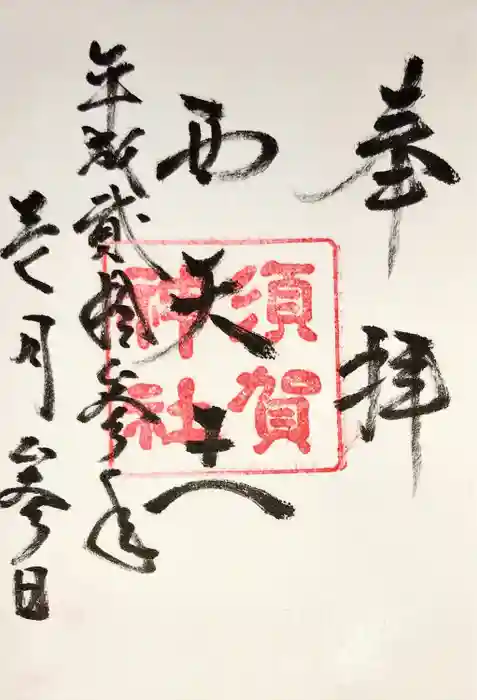 奉拝
西天
須賀
神社
平成貳拾参年
壱月参日